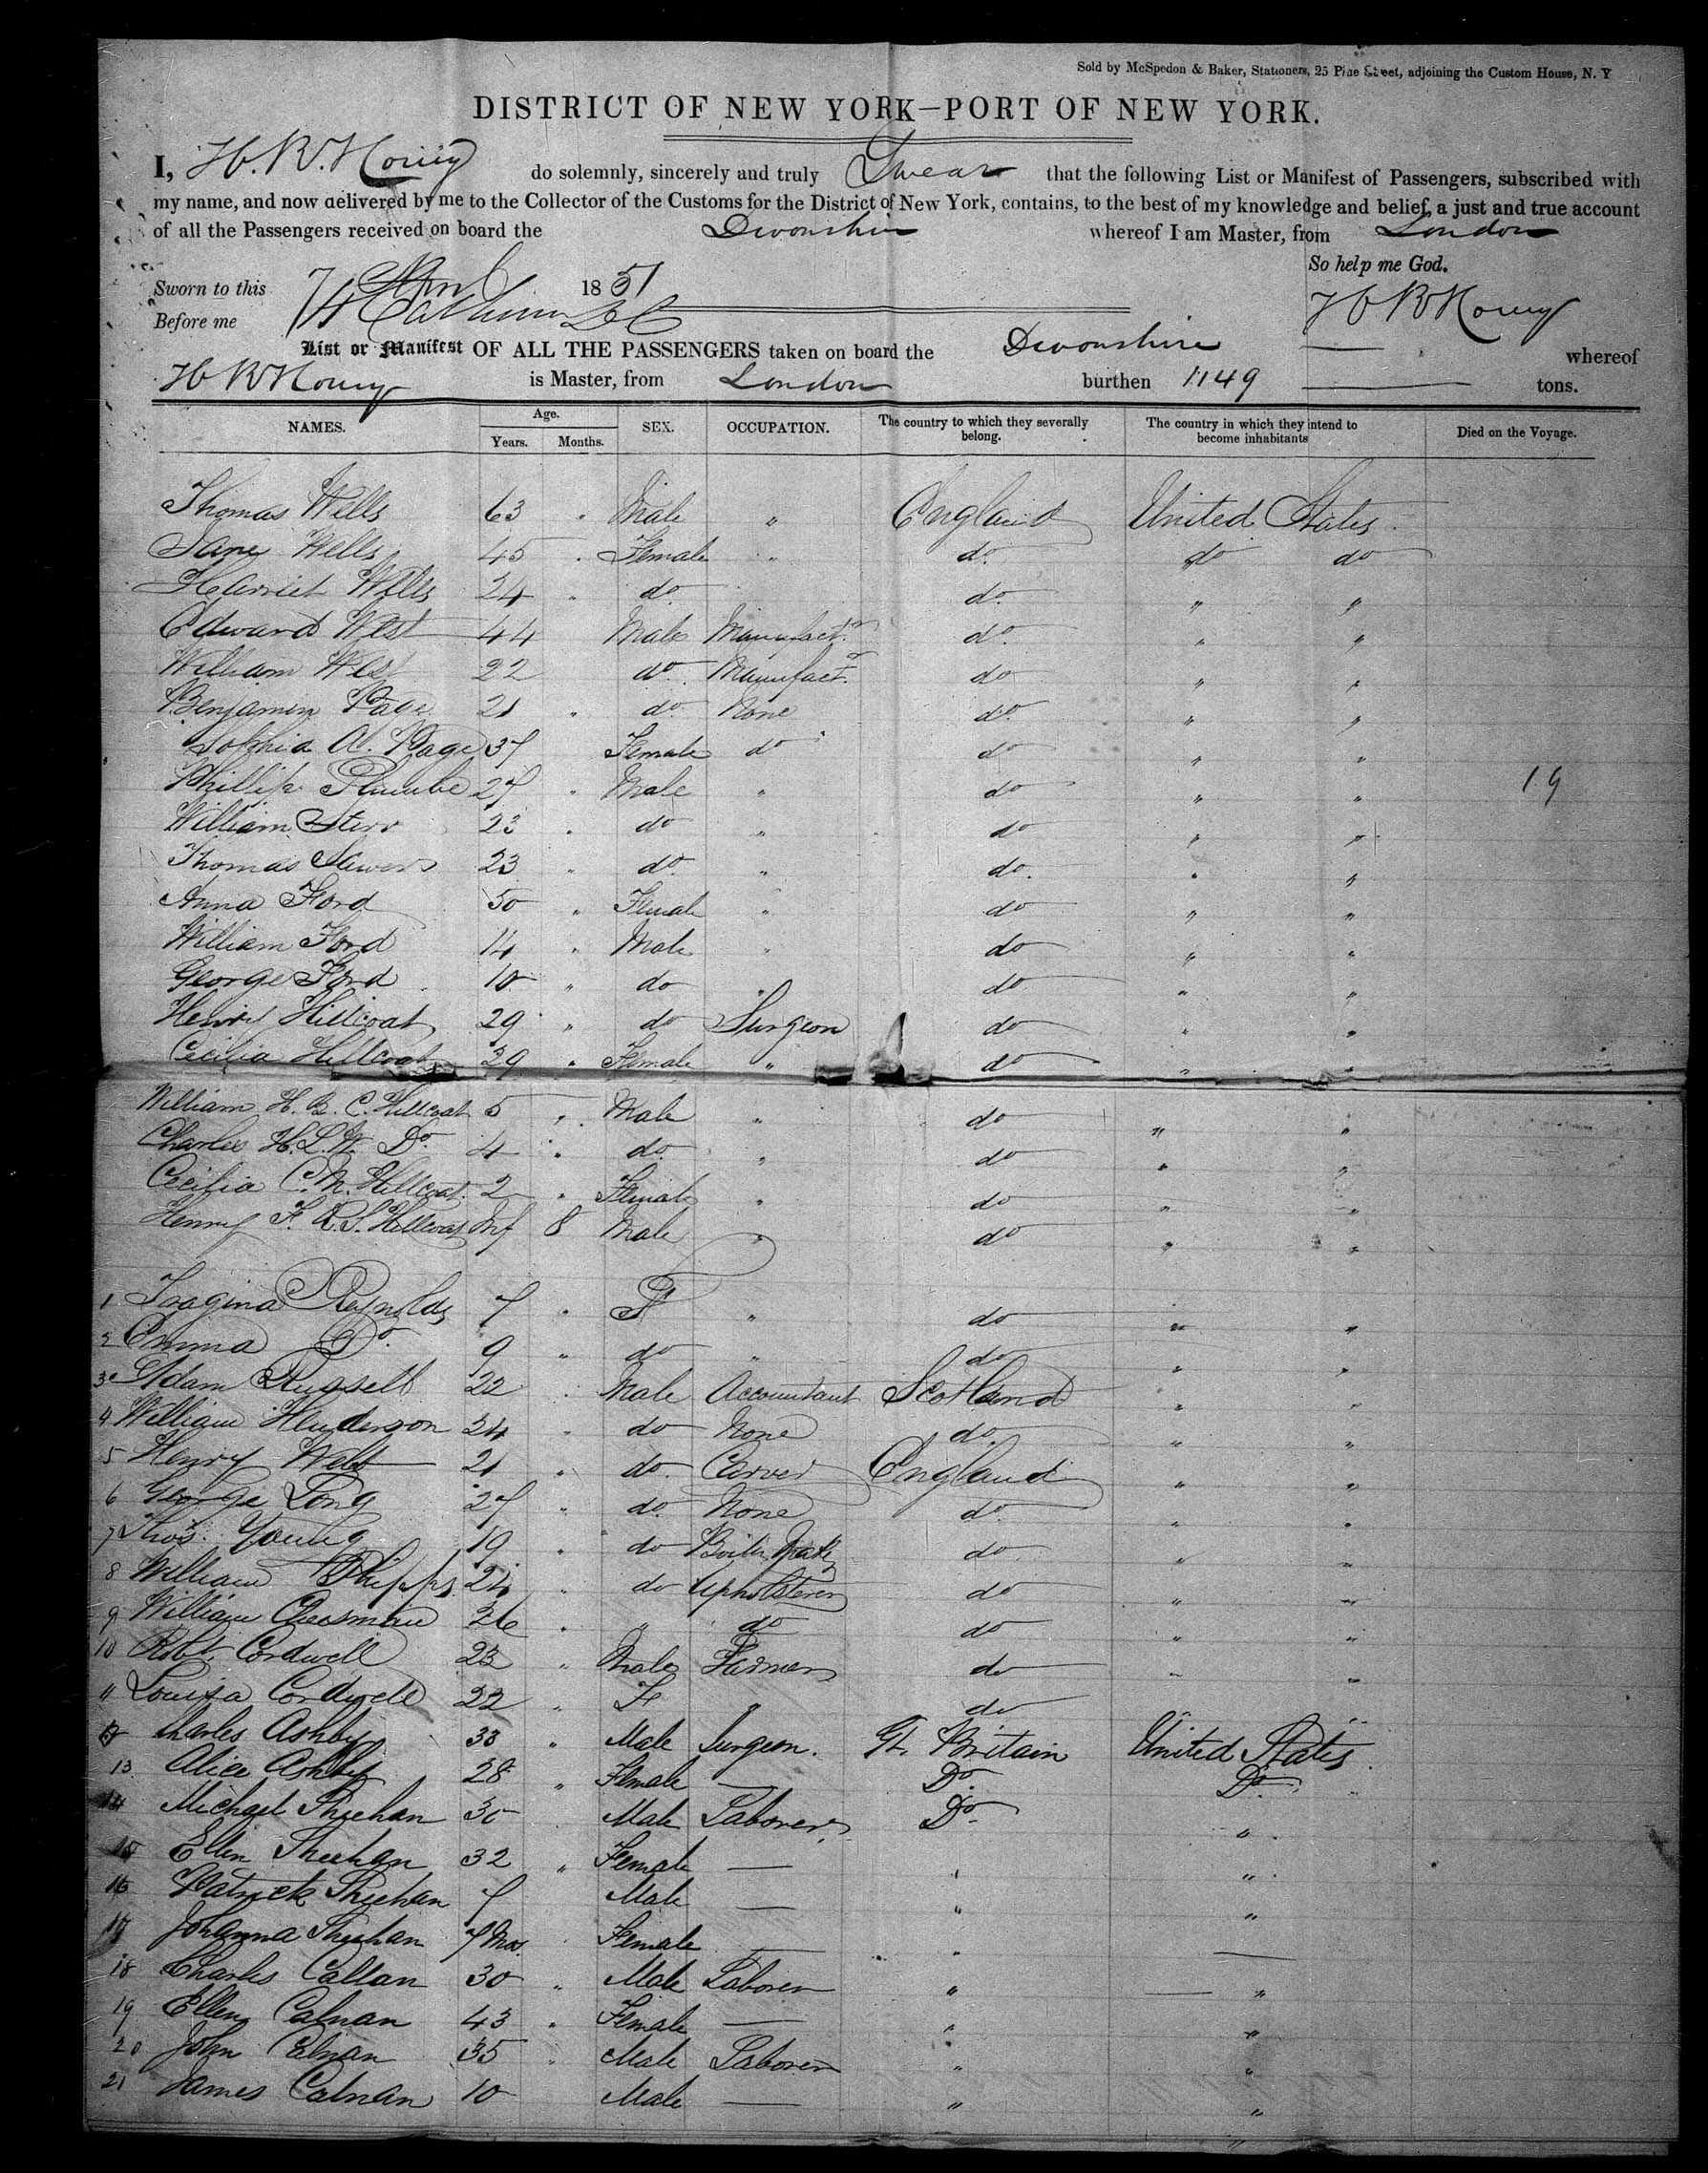 Sold by McSpedon & Baker, Stationers, 25 Pine Street, adjoining the Custom House, N. Y
DISTRICT OF NEW YORK—PORT OF NEW YORK.
I, do solemnly, sincerely and truly Swear that the following List or Manifest of Passengers, subscribed with
my name, and now delivered by me to the Collector of the Customs for the District of New York, contains, to the best of my knowledge and belief, a just and true account
of all the Passengers received on board the Devonshire whereof I am Master, from London
So help me God.
Sworn to this 7 April 1851
Before me
List or Manifest OF ALL THE PASSENGERS taken on board the Devonshire whereof
is Master, from London burthen 1149 tons.
NAMES. Age. Years. Months. SEX. OCCUPATION. The country to which they severally belong. The country in which they intend to become inhabitants Died on the Voyage.
Thomas Wells 63 " Male " England United States
Jane Wells 45 " Female " do do do
Harriet Wells 24 " do do " "
Edward West 44 Male Manufactr do " "
William West 22 do Manufactr do " "
Benjamin Page 21 " do None do " "
Sophia A. Page 37 Female do do " "
Phillip Plumbe 27 " Male " do " " 19
William 23 " do " do " "
Thomas 23 " do " do " "
Anna Ford 50 " Female " do " "
William Ford 14 " Male " do " "
George Ford 10 " do " do " "
Henry Hillcoat 29 " do Surgeon do " "
Cecilia Hillcoat 29 " Female " do " "
William H. B. C. Hillcoat 5 " Male " do " "
Charles H. L. W. Do 4 " do " do " "
Cecilia C. M. Hillcoat 2 " Female " do " "
Henry F. R. S. Hillcoat Inf 8 Male " do " "
1 Reynolds 7 " F " do " "
2 Emma Do 9 " do " do " "
3 Adam Russell 22 " Male Accountant Scotland " "
4 William Henderson 24 " do None do " "
5 Henry 21 " do Carver England " "
6 George Long 27 " do None do " "
7 Thos. Young 19 " do Boiler Maker do " "
8 William Phipps 24 " do Upholsterer do " "
9 William Cheesman 26 " " do do " "
10 Robt. Cordwell 23 " Male Farmer do " "
11 Louisa Cordwell 22 " F " do " "
12 Charles Ashby 33 " Male Surgeon. Gt. Britain United States
13 Alice Ashby 28 " Female — Do Do "
14 Michael Sheehan 30 Male Laborer Do "
15 Ellen Sheehan 32 " Female — " "
16 Patrick Sheehan 7 Male — " "
17 Johanna Sheehan 7 Mos. Female — " —
18 Charles Callan 30 " Male Laborer " — "
19 Ellen Calnan 43 " Female — " "
20 John Calnan 35 " Male Laborer " "
21 James Calnan 10 Male — " "